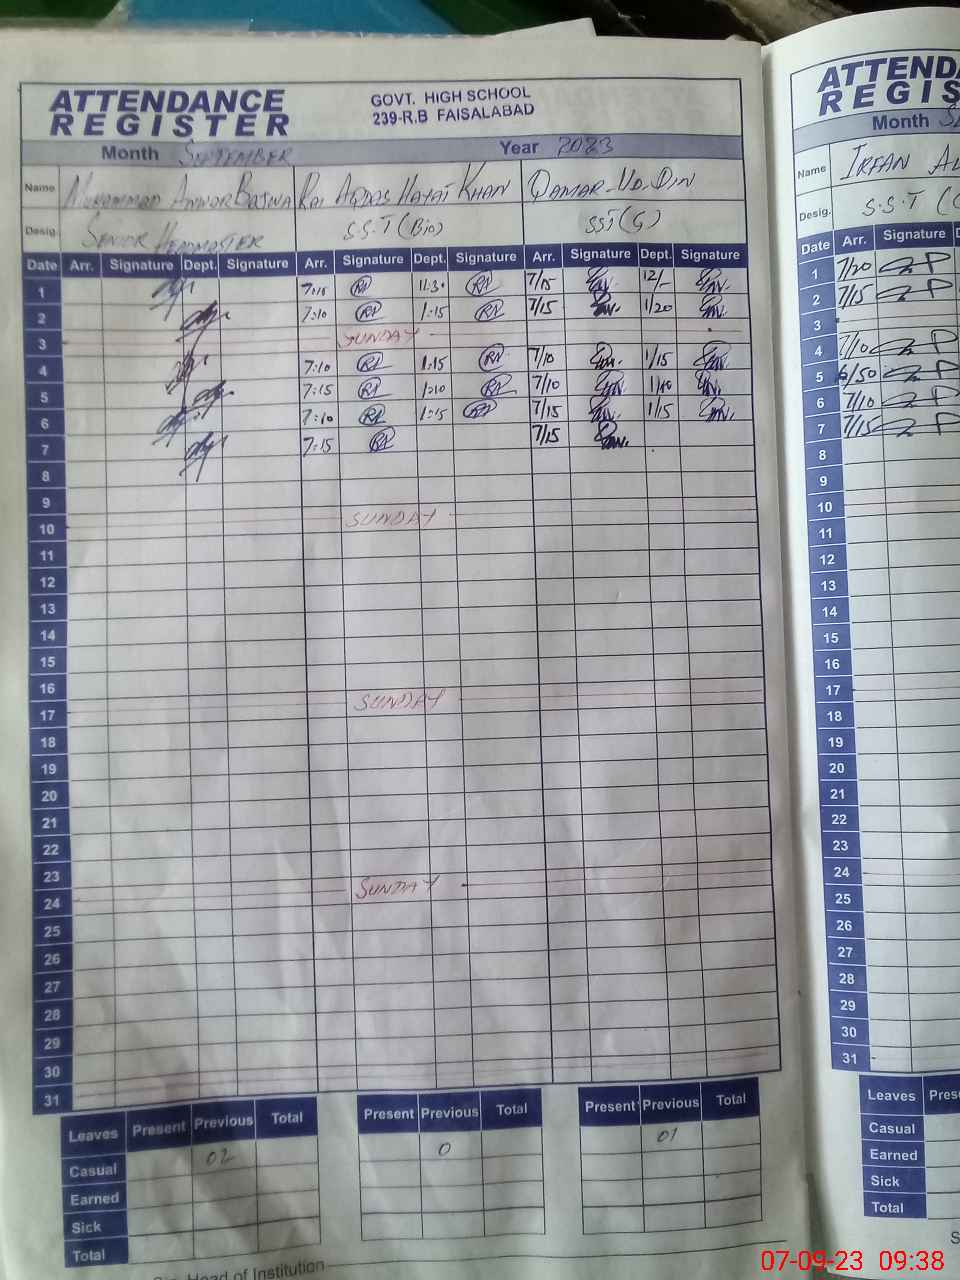 ATTENDANCE
REGISTER
GOVT. HIGH SCHOOL
239-R.B FAISALABAD
Month SEPTEMBER Year 2023
Name MUHAMMAD ANWOR BAJWA RAI AQDAS HAYAT KHAN QAMAR-UD-DIN
Desig. SENIOR HEADMASTER S.S.T (Bio) SST (G)
Date Arr. Signature Dept. Signature Arr. Signature Dept. Signature Arr. Signature Dept. Signature
1 7:15 11:30 7/15 12/-
2 7:10 1:15 7/15 1/20
3 SUNDAY
4 7:10 1:15 7/10 1/15
5 7:15 1:10 7/10 1/10
6 7:10 1:15 7/15 1/15
7 7:15 7/15
8
9
10 SUNDAY
11
12
13
14
15
16
17 SUNDAY
18
19
20
21
22
23
24 SUNDAY
25
26
27
28
29
30
31
Leaves Present Previous Total Present Previous Total Present Previous Total
Casual 02 0 01
Earned
Sick
Total
Head of Institution
ATTENDA
REGIS
Month
Name IRFAN
Desig. S.S.T
Date Arr. Signature
1 7/20
2 7/15
3
4 7/10
5 6/50
6 7/10
7 7/15
8
9
10
11
12
13
14
15
16
17
18
19
20
21
22
23
24
25
26
27
28
29
30
31
Leaves Prese
Casual
Earned
Sick
Total
07-09-23 09:38